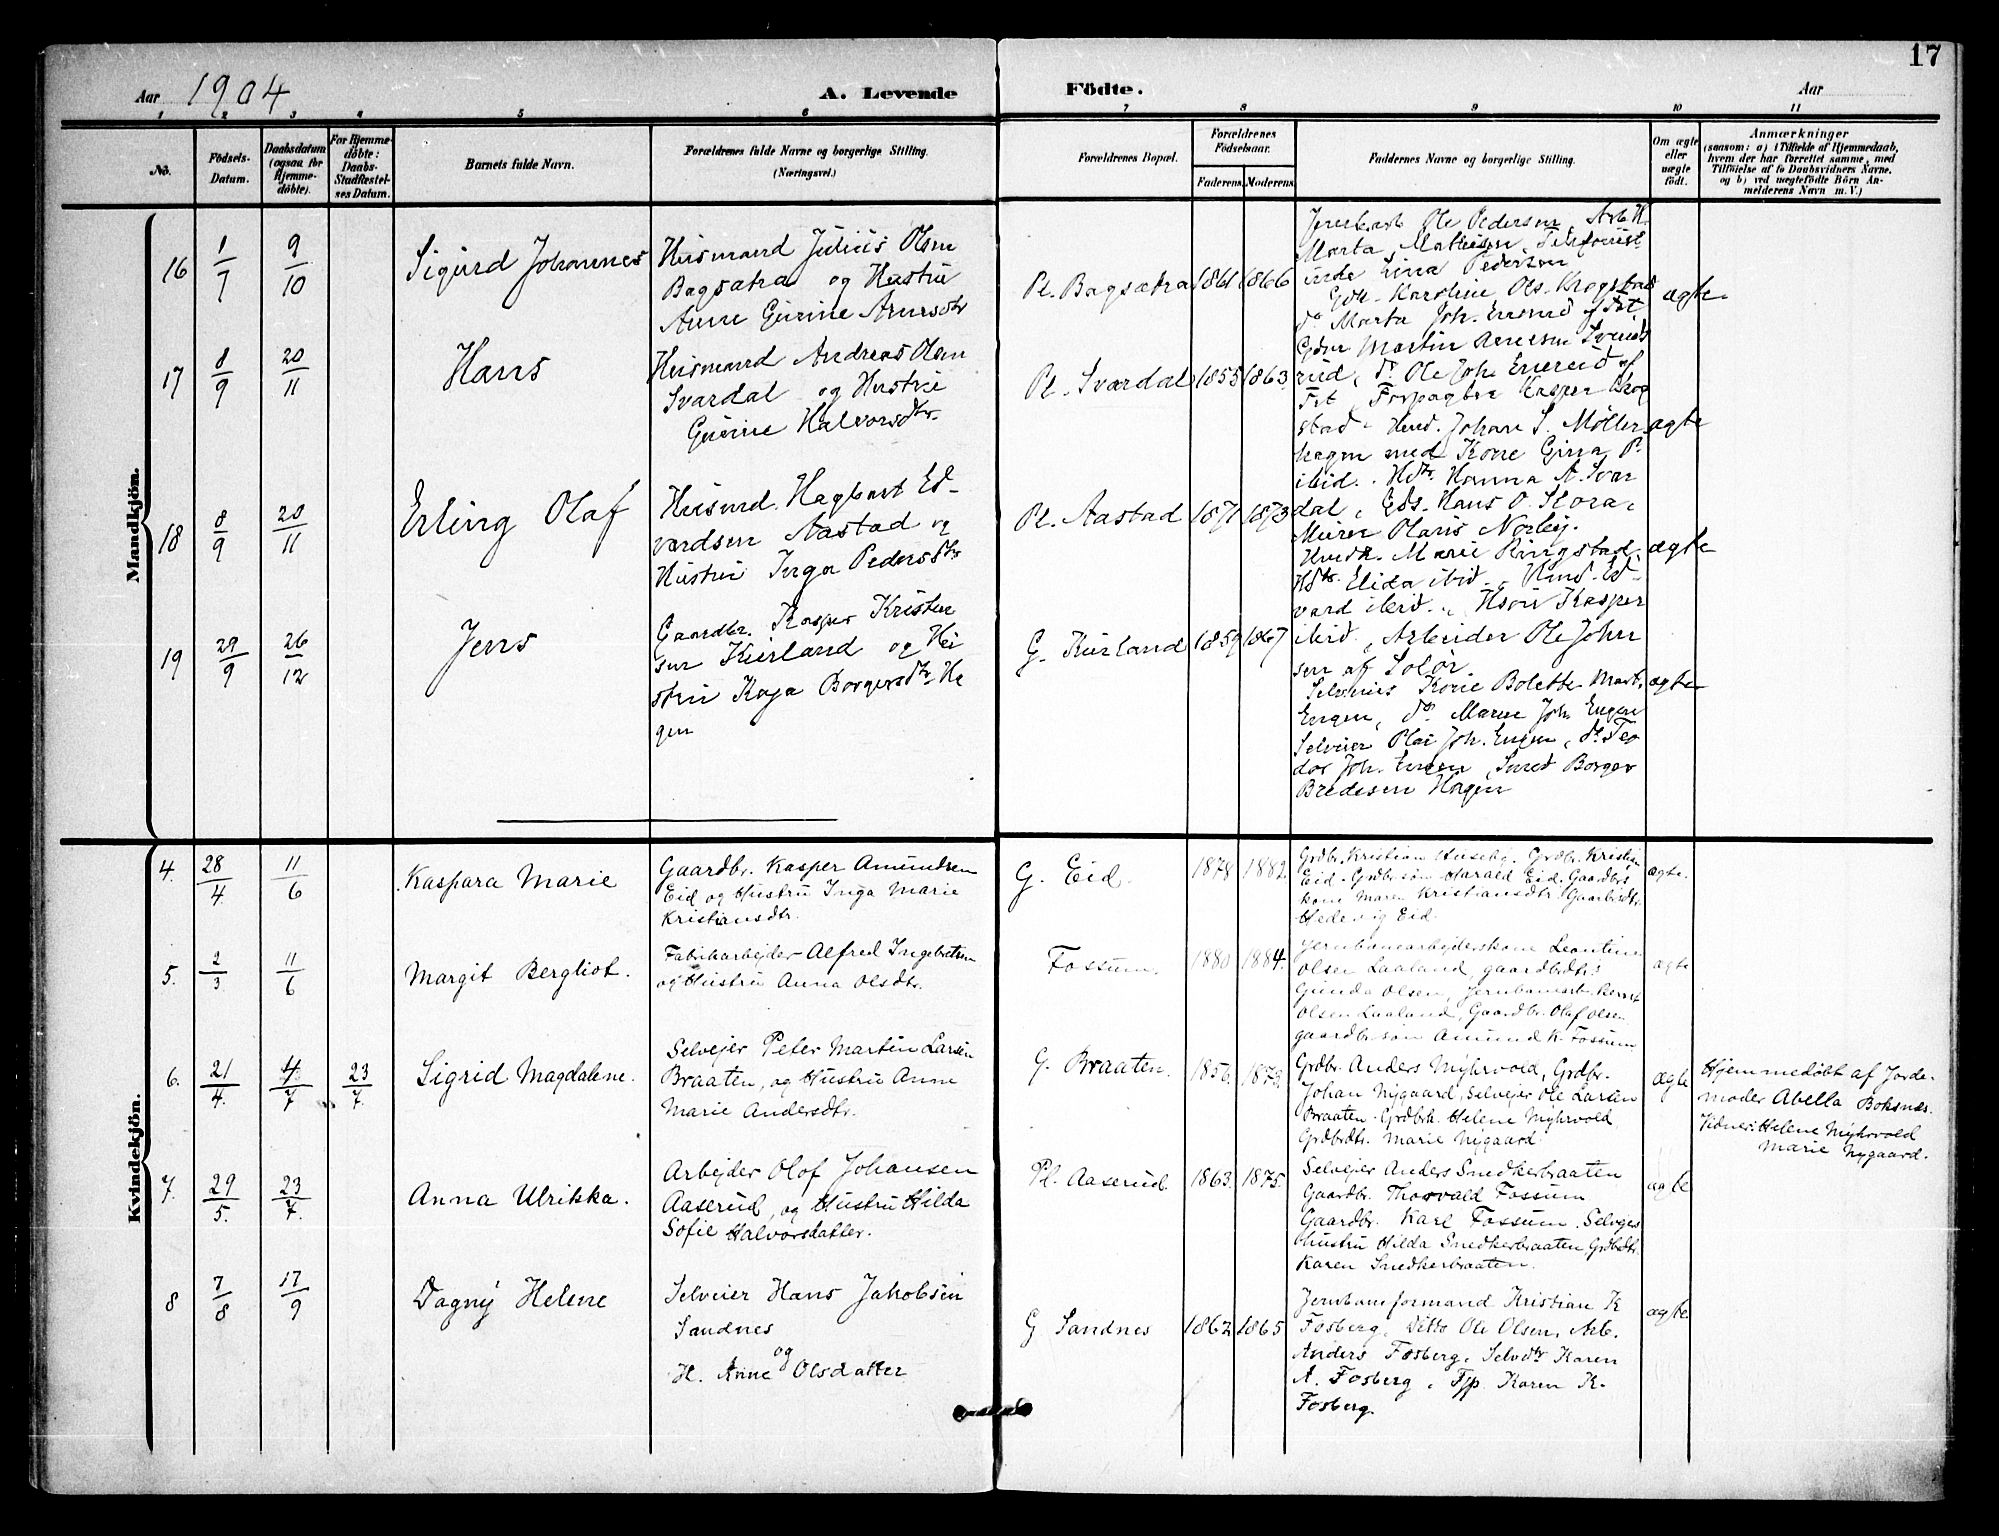 17
Aar 1904
A. Levende
Födte.
Aar
1 2 3 4 5 6 7 8 9 10 11
No.
Födsels-
Datum.
Daabsdatum
(ogsaa for
Hjemme-
døbte).
For Hjemme-
døbte:
Daabs-
Stadfæstel-
ses Datum.
Barnets fulde Navn.
Forældrenes fulde Navne og borgerlige Stilling.
(Næringsvei.)
Forældrenes Bopæl.
Forældrenes
Födselsaar.
Faderens. Moderens.
Faddernes Navne og borgerlige Stilling.
Om ægte
eller
uægte
født.
Anmærkninger
(saasom: a) i Tilfælde af Hjemmedaab,
hvem der har forrettet samme, med
Tilføielse af to Daabsvidners Navne,
og b) ved uægtefødte Börn An-
melderens Navn m. V.)
Mandkjön.
16
1/7
9/10
Sigurd Johannes
Husmand Julius Olsen
Bagsætra og Hustru
Anne Gurine
Pl. Bagsætra
1861 1866
Jernbarb Ole Pedersen, Arb. K.
Marta Mathisen,
Lina Pedersen
Gdk. Karoline Ols. Krogstad
do Marta Joh. af Fet
ægte
17
8/9
20/11
Hans
Husmand Andreas Olsen
Svardal og Hustru
Gurine Halvorsdtr.
Pl. Svardal
1855 1863
Martin
rud, do Ole Joh. af
Fet, Forpagter Kasper Krog
stad - Hmd. Johan S. Møller
hagen med Kone Gina P.
ibid. Hdtr. Hanna A. Svar
dal, Gds. Hans O. Stora,
Murer Norby.
ægte
18
8/9
20/11
Erling Olaf
Husmd. Hagbart Ed-
vardsen Aastad og
Hustru Inga Pedersdtr
Pl. Aastad
1871 1873
Hmdk. Marie Ringstad
Hdtr. Elida ibid., Hmd. Ed-
vard ibid., Kasper
ibid., Arbeider Ole John
sen af Solør.
ægte
19
29/9
26/12
Jens
Gaardbr. Kasper Kristen
sen Kurland og Hu
stru Kaja Borgersdtr. Ho
gen
G. Kurland
1859 1867
Selveiers Kone Bolette Mart.
Engen, do. Maren Joh. Engen
Selveier Joh. Engen, do. Teo
dor Joh. Engen, Smed Borger
Bredesen Hogen
ægte
Kvindekjön.
4.
28/4
11/6
Kaspara Marie
Gaardbr. Kasper Amundsen
Eid og Hustru Inga Marie
Kristiansdtr.
G. Eid.
1878 1882.
Grdbr. Kristian Huseby. Grdbr. Kristian
Eid - Grdbrsøn Harald Eid. Gaardbrs
kone Maren Kristiansdtr. Gaardbrdtr.
Hedevig Eid.
ægte.
5.
2/3
11/6
Margit Bergliot.
Fabrikarbejder Alfred Ingebretsen
og Hustru Anna Olsdtr.
Fossum.
1880 1884.
Jernbanearbejderskone Leontine
Olsen Laaland, gaardbrdtr.
Gunda Olsen, Jernbanearb. Bernt
Olsen Laaland, Gaardbr. Olaf Olsen
gaardbr. søn Amund K. Fossum
ægte
6.
21/4.
4./7
23/7.
Sigrid Magdalene.
Selvejer Peter Martin Larsen
Braaten, og Hustru Anne
Marie Andersdtr.
G. Braaten.
1856. 1873.
Grdbr. Anders Myhrvold, Grdbr.
Johan Nygaard, Selvejer Ole Larsen
Braaten. Grdbrk. Helene Myhrvold
Grdbrdtr. Marie Nygaard.
ægte
Hjemmedøbt af Jorde-
moder Abella Boksnæs.
Vidner: Helene Myhrvold
Marie Nygaard.
7.
29/5.
23/7.
Anna Ulrikka.
Arbejder Olof Johansen
Aaserud, og Hustru Hilda
Sofie Halvorsdatter.
Pl. Aaserud.
1863. 1875.
Selvejer Anders Snedkerbraaten
Gaardbr. Thorvald Fossum
Gaardbr. Karl Fossum. Selvejers
Hustru Hilda Snedkerbraaten, Grdbrdtr.
Karen Snedkerbraaten.
ægte
8
7/8
17/9
Dagny Helene
Selveier Hans Jakobsen
Sandnes
og
H. Anne Olsdatter
G Sandnes
1862 1865
Jernbaneformand Kristian K
Fosberg, Ditto Ole Olsen, Arb.
Anders Fosberg, Selvdtr Karen
A. Fosberg, Tjp. Karen K.
Fosberg.
ægte